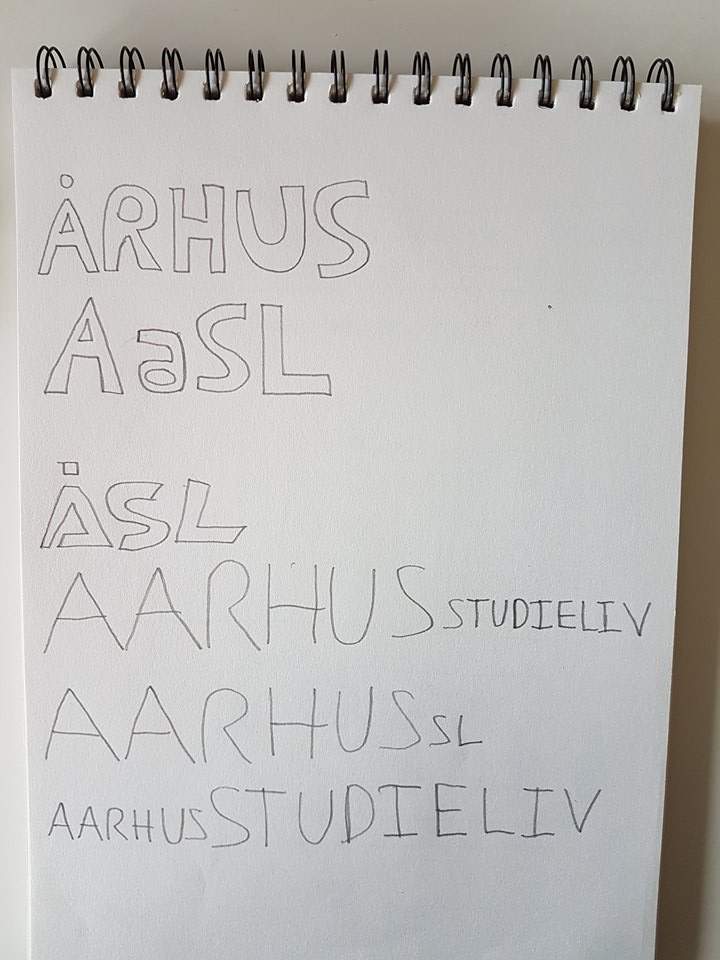 ÅRHUS
AaSL
ÅSL
AARHUS STUDIELIV
AARHUS SL
AARHUS STUDIELIV